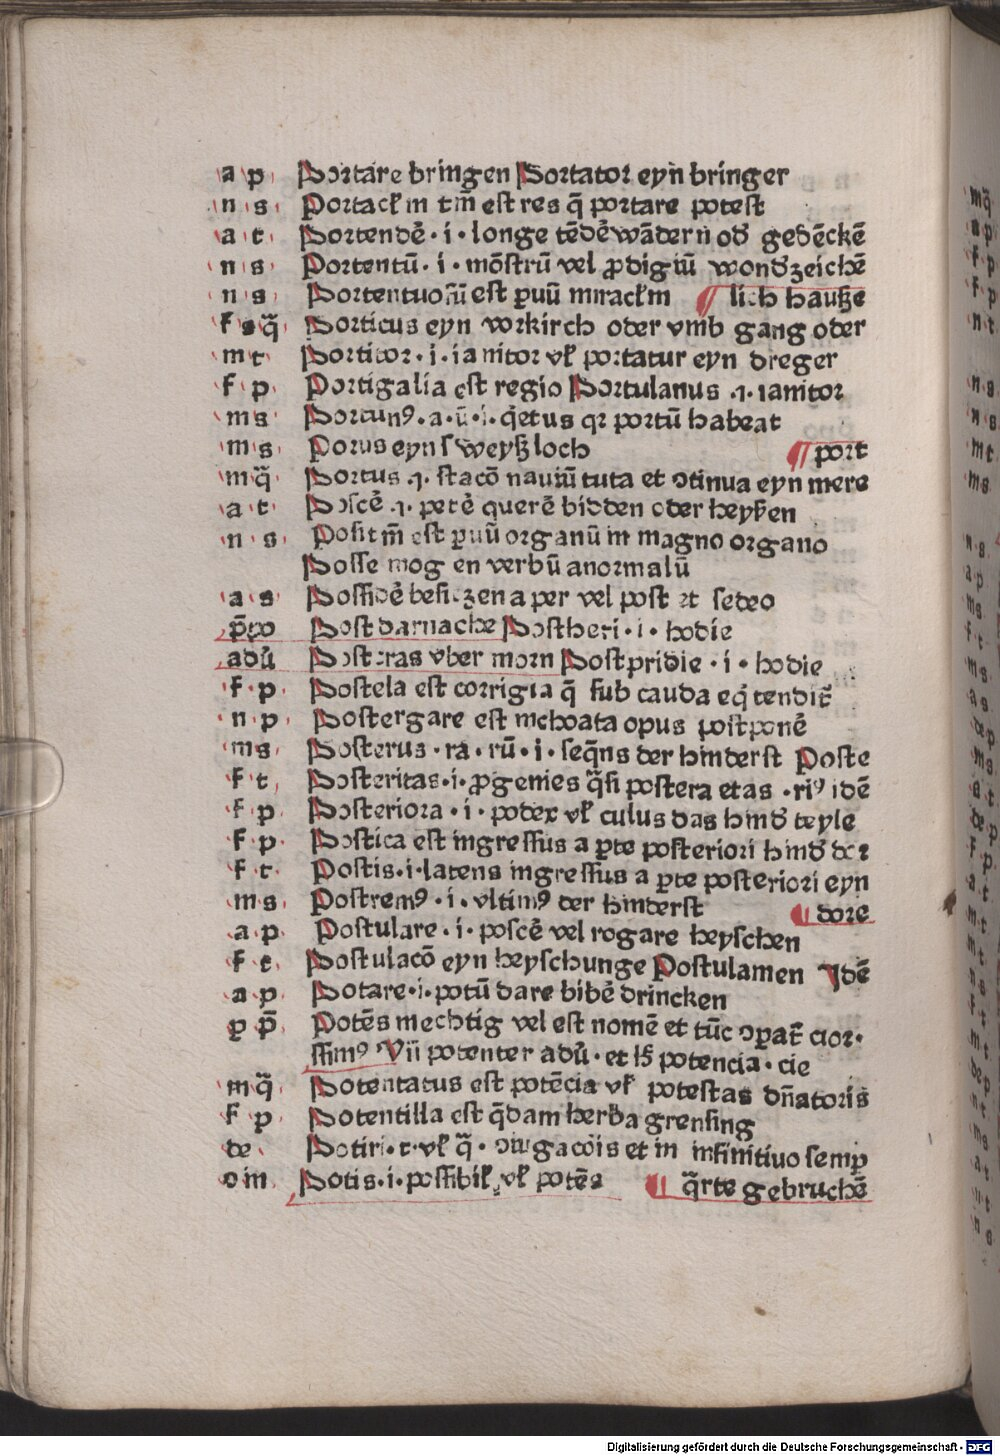 a p Portare bringen Portator eyn bringer
n s Portackľm tm̄ est res q̄ portare potest
a t Portendē · i · longe tēdē wādern od' gedēckē
n s Portentū · i · mōstrū vel ꝓdigiū wond'zeichē
n s Portentuosū est ꝑuū mirackľm ¶ lich hauße
f sq̄ Porticus eyn vorkirch oder vmb gang oder
m t Portitor · i · ianitor vľ portatur eyn dreger
f p Portigalia est regio Portulanus .i. ianitor
m s Portunꝰ · a · ū · i · q̄etus qr portū habeat
m s Porus eyn sweyßloch ¶ port
m q̄ Portus .i. stacō naviū tuta et ↄtinua eyn mere
a t Poscē .i. petē querē bidden oder heyßen
n s Positm̄ est ꝑuū organū in magno organo
Posse mogen verbū anormalū
a s Possidē besiczen a per vel post et sedeo
p̄ꝑo Post darnache Postheri · i · hodie
adū Postcras vber morn Postpridie · i · hodie
f p Postela est corrigia q̄ sub cauda eq̄ tendit̄
n p Postergare est inchoata opus postponē
m s Posterus · ra · rū · i · seq̄ns der hinderst Poste
f t Posteritas · i · ꝓgenies q̄si postera etas · riꝰ idē
f p Posteriora · i · podex vľ culus das hind' teyle
f p Postica est ingressus a ꝑte posteriori hind' dor
f t Postis · i · latens ingressus a ꝑte posteriori eyn
m s Postremꝰ · i · vltimꝰ der hinderst ¶ dore
a p Postulare · i · poscē vel rogare heyschen
f t Postulacō eyn heyschunge Postulamen Idē
a p Potare · i · potū dare bibē drincken
ꝑ p̄ Potēs mechtig vel est nomē et tūc ↄꝑat̄ cior ·
ssimꝰ Vñ potenter adū · et hꝫ potencia · cie
m q̄ Potentatus est potēcia vľ potestas dñatoris
f p Potentilla est q̄dam herba grensing
de Potiri · t · vľ q̄ · ↄiugacōis et in infinitiuo semꝑ
oim Potis · i · possibiľ vľ potēs ¶ q̄rte gebruchē
Digitalisierung gefördert durch die Deutsche Forschungsgemeinschaft - DFG